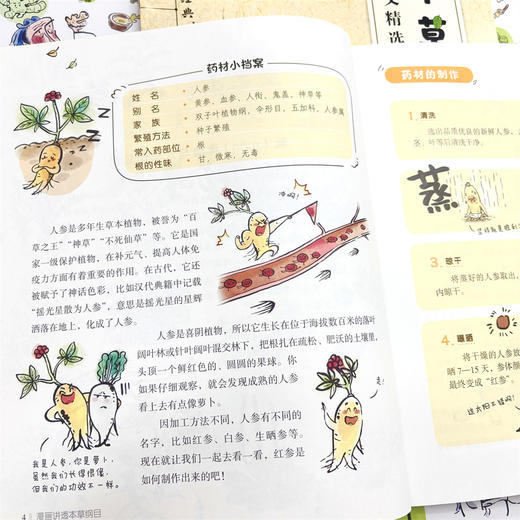 药材小档案
姓名 人参
别名 黄参、血参、人衔、鬼盖、神草等
家族 双子叶植物纲、伞形目、五加科、人参属
繁殖方法 种子繁殖
常入药部位 根
根的性味 甘，微寒，无毒
人参是多年生草本植物，被誉为“百
草之王”“神草”“不死仙草”等。它是国
家一级保护植物，在补元气、提高人体免
疫力方面有着重要的作用。在古代，它还
被赋予了神话色彩，比如汉代典籍中记载
“摇光星散为人参”，意思是摇光星的星辉
洒落在地上，化成了人参。
冲啊！
人参是喜阴植物，所以它生长在位于海拔数百米的落叶
阔叶林或针叶阔叶混交林下，把根扎在疏松、肥沃的土壤里，
头顶一个鲜红色的、圆圆的果球。你
如果仔细观察，就会发现成熟的人参
看上去有点像萝卜。
因加工方法不同，人参有不同的
名字，比如红参、白参、生晒参等。
现在就让我们一起去看一看，红参是
如何制作出来的吧！
我是人参，你是萝卜，
虽然我们长得很像，
但我们的功效不一样。
4 漫画讲透本草纲目
药材的制作
1. 清洗
选出品质优良的新鲜人参，
名、叶等后清洗干净。
蒸
3. 晾干
将蒸好的人参取出，
内晾干。
4. 曝晒
将干燥的人参放
晒7—15天，参体颜
最终变成“红参”。
文精选
经典
草